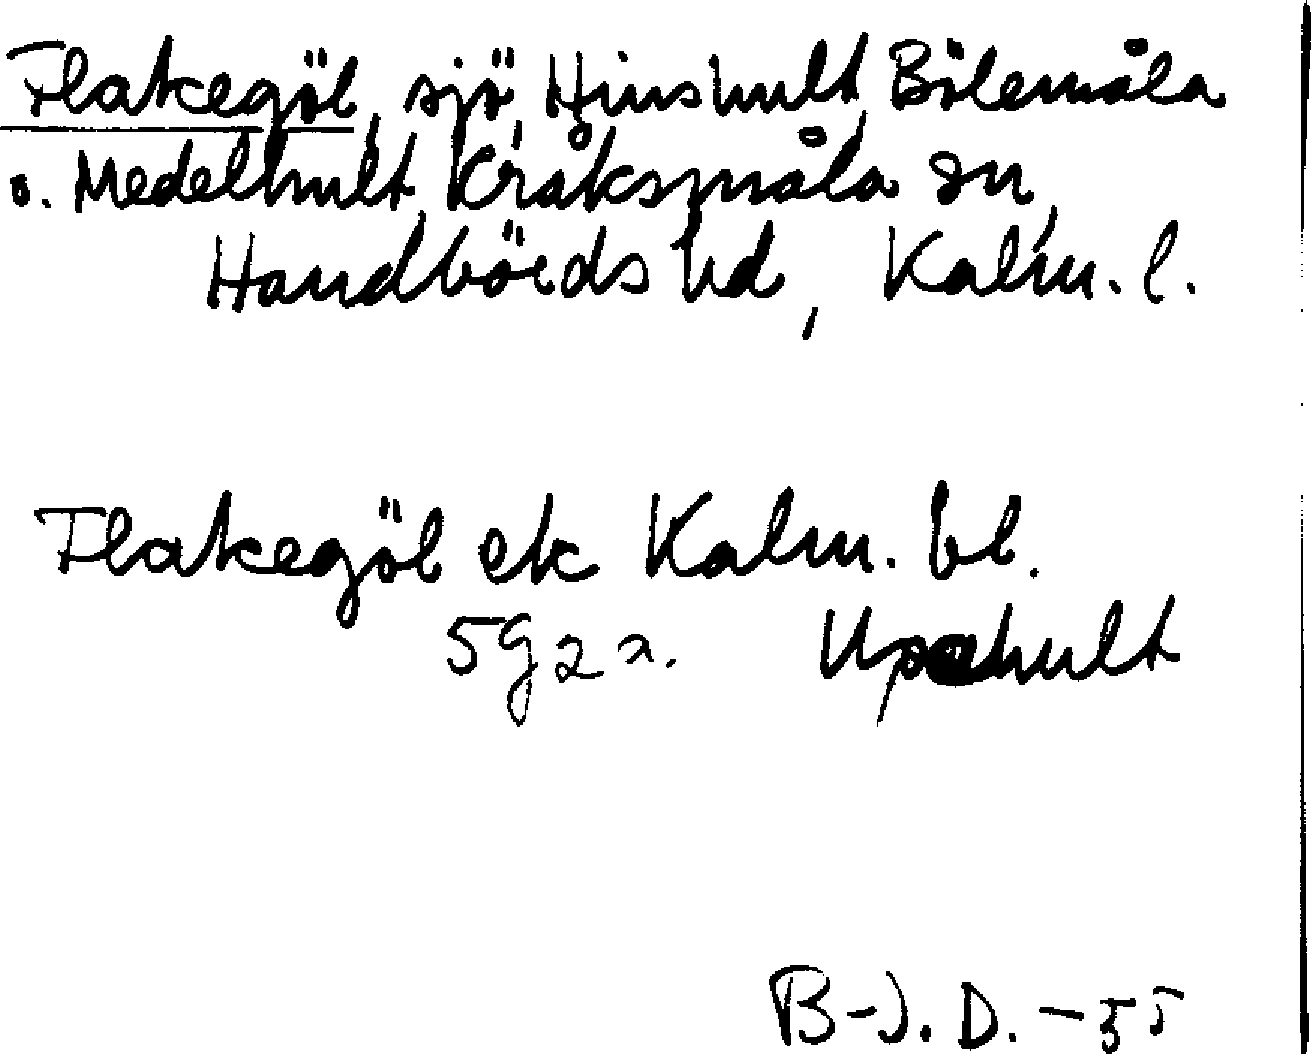 Flakegöl, sjö, Hinshult, Bölemåla
o. Medelhult, Kråksmåla sn,
Handbörds hd, Kalm. l.
Flakegöl ek Kalm. bl.
5g2a.
B-J. D. - 55